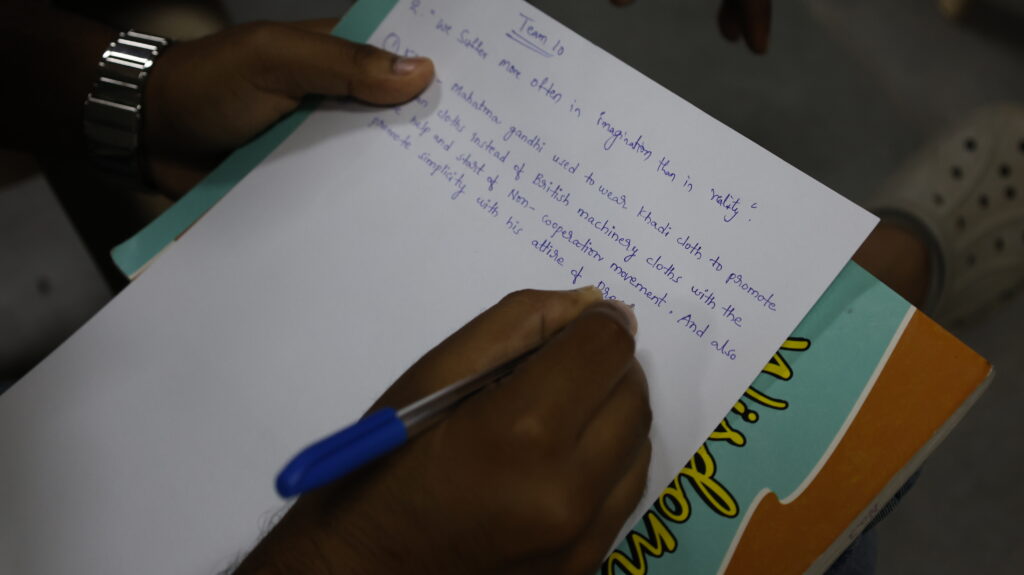 Team 10
2. "We Suffer more often in imagination than in rality".
① Mahatma gandhi used to wear khadi cloth to promote
cloths instead of British machinery cloths with the
help and start of Non-cooperation movement. And also
promote simplicity with his attire of
Wisdom